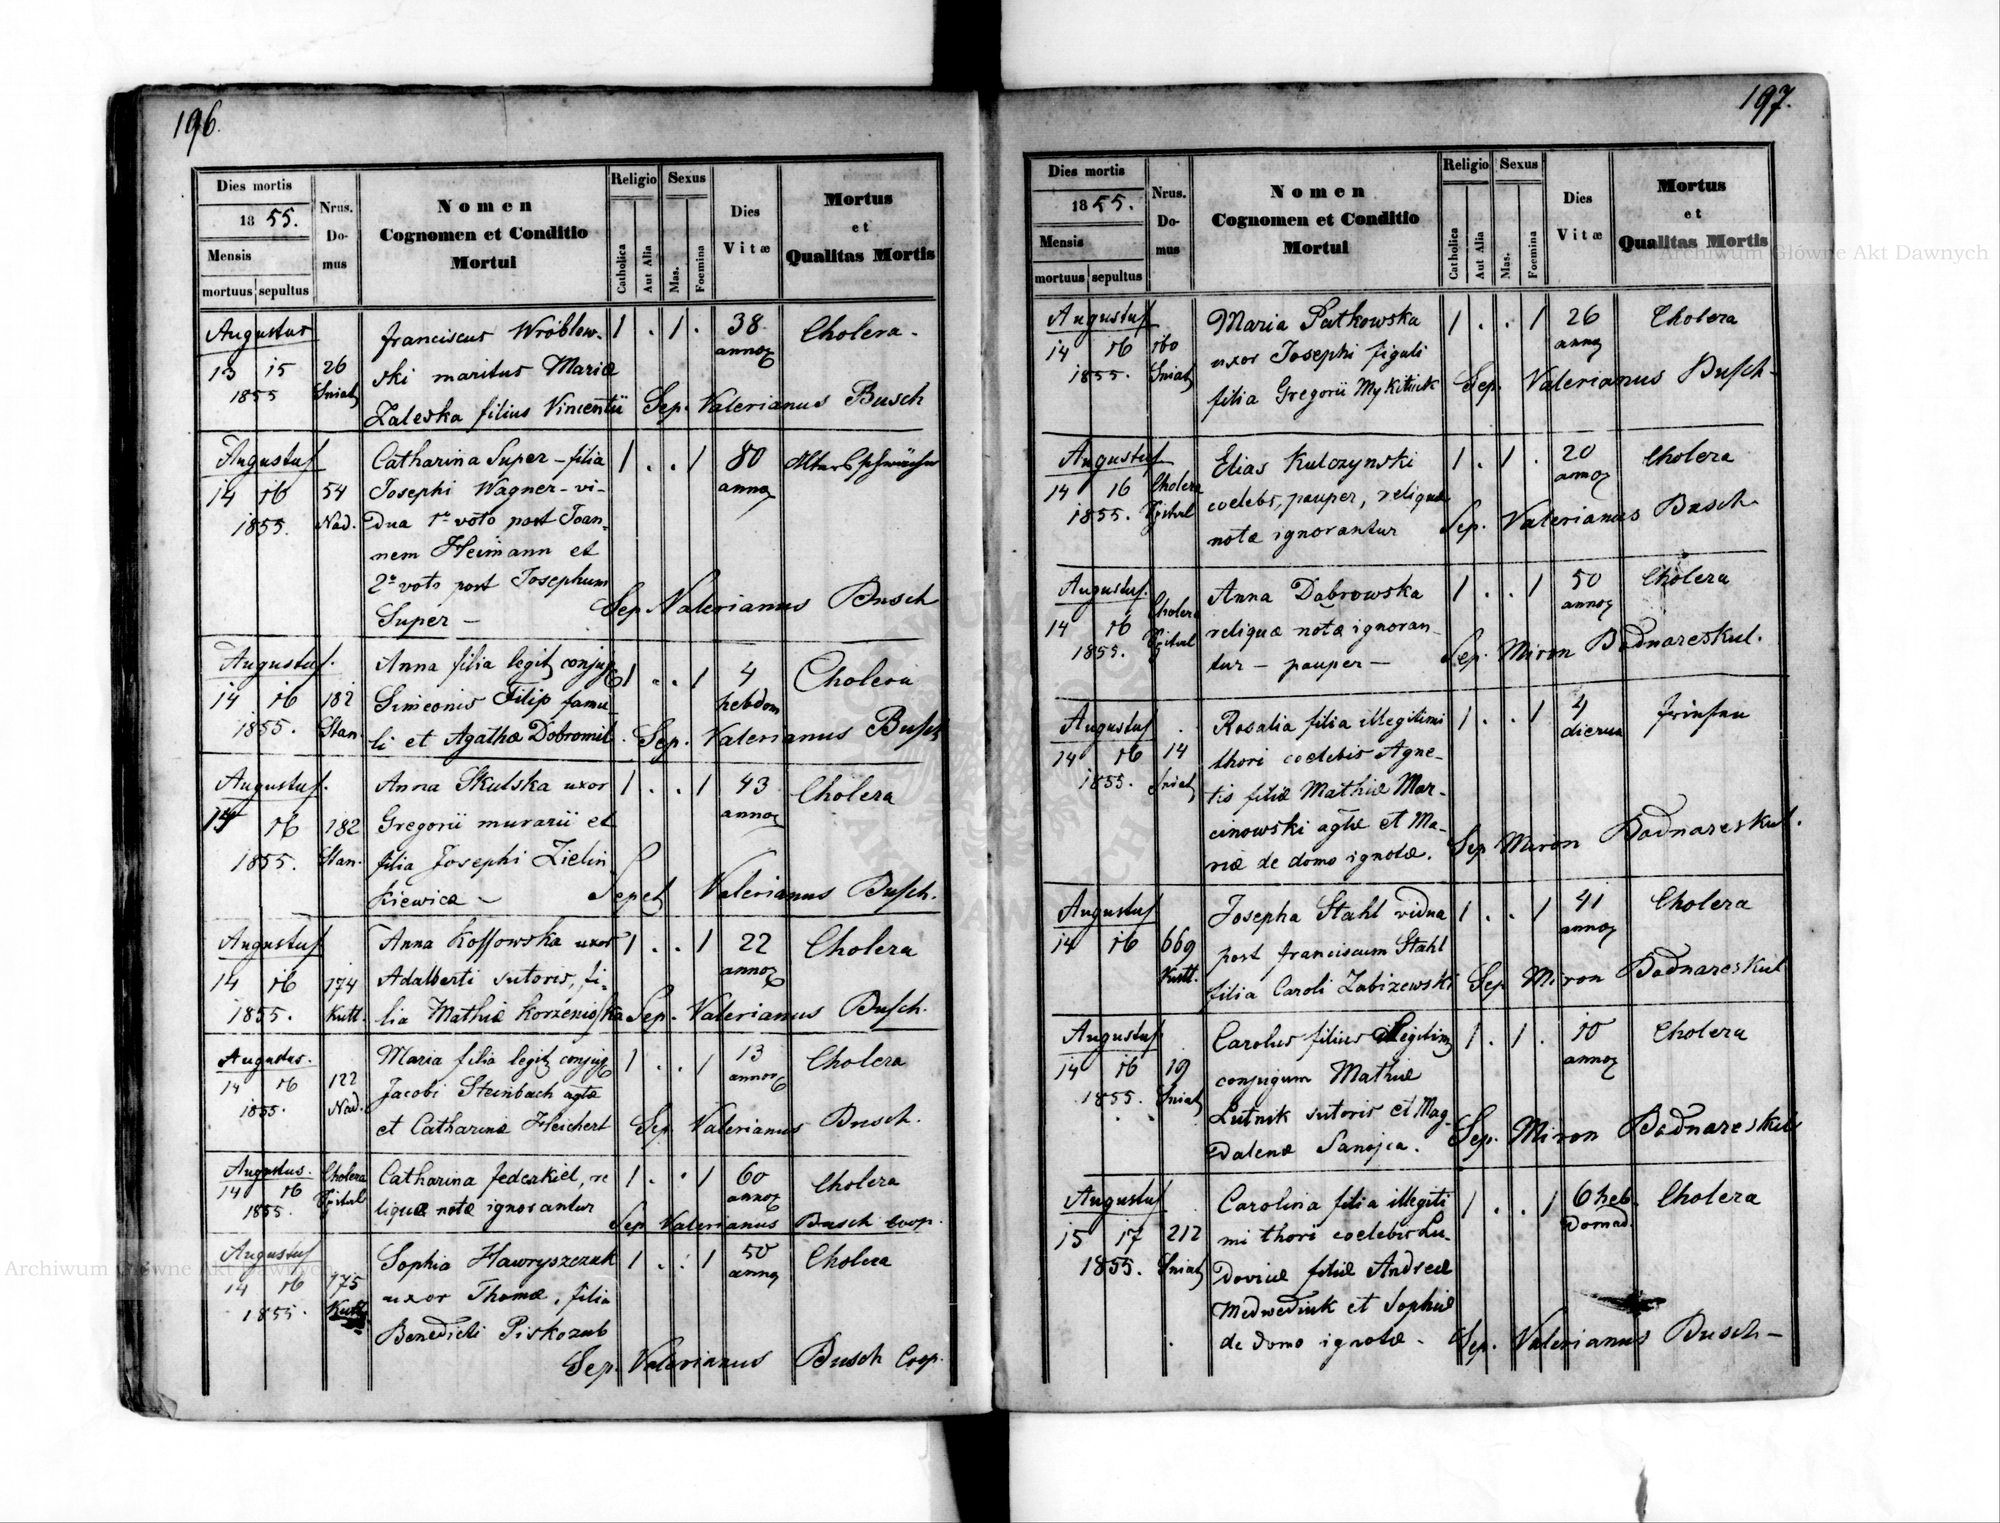 196.
Dies mortis
1855.
Mensis
mortuus sepultus
Nrus.
Do-
mus
Nomen
Cognomen et Conditio
Mortui
Religio
Catholica
Aut Alia
Sexus
Mas.
Foemina
Dies
Vitæ
Mortus
et
Qualitas Mortis
Augustus
13 15
1855
26
Sniat
Franciscus Wróblew-
ski maritus Mariæ
Zaleska filius Vincentii
1 . 1 .
38
annor
Cholera.
Sep. Valerianus Busch
Augustus
14 16
1855.
54
Nad.
Catharina Super - filia
Josephi Wagner - vi-
dua 1º voto post Joan-
nem Heimann et
2º voto post Josephum
Super -
1 . . 1
80
annor
Altersschwäche
Sep. Valerianus Busch
Augustus.
14 16
1855.
182
Stan.
Anna filia legit conjug
Simeonis Filip famu-
li et Agathæ Dobromil
1 . . 1
4
hebdom
Cholera
Sep. Valerianus Busch
Augustus.
14 16
1855.
182
Stan.
Anna Skulska uxor
Gregorii murarii et
filia Josephi Zielin
kiewicz -
1 . . 1
43
annor
Cholera
Sepel Valerianus Busch.
Augustus
14 16
1855.
174
Kutt.
Anna Kossowska uxor
Adalberti sutoris, fi-
lia Mathiæ Korzeniowska
1 . . 1
22
annor
Cholera
Sep. Valerianus Busch.
Augustus.
14 16
1855.
122
Nad.
Maria filia legit conjug
Jacobi Steinbach agtæ
et Catharinæ Fleichert
1 . . 1
13
annor
Cholera
Sep. Valerianus Busch.
Augustus.
14 16
1855.
Cholera
Spital
Catharina Federkiel, re
liquæ notæ ignorantur
1 . . 1
60
annor
Cholera
Sep Valerianus Busch Coop.
Augustus
14 16
1855.
175
Kutt.
Sophia Hawryszczuk
uxor Thomæ, filia
Benedicti Piskozub
1 . . 1
50
annor
Cholera
Sep. Valerianus Busch Coop.
197.
Dies mortis
1855.
Mensis
mortuus sepultus
Nrus.
Do-
mus
Nomen
Cognomen et Conditio
Mortui
Religio
Catholica
Aut Alia
Sexus
Mas.
Foemina
Dies
Vitæ
Mortus
et
Qualitas Mortis
Augustus
14 16
1855.
160
Sniat
Maria Patkowska
uxor Josephi figuli
filia Gregorii Mykitiuk
1 . . 1
26
annor
Cholera
Sep. Valerianus Busch-
Augustus
14 16
1855.
Cholera
Spital
Elias Kulczynski
coelebs, pauper, reliquæ
notæ ignorantur
1 . 1 .
20
annor
Cholera
Sep. Valerianus Busch
Augustus.
14 16
1855.
Cholera
Spital
Anna Dąbrowska
reliquæ notæ ignoran-
tur - pauper -
1 . . 1
50
annor
Cholera
Sep. Miron Bodnareskul.
Augustus
14 16
1855.
14
Sniat
Rosalia filia illegitimi
thori coelebis Agne-
tis filiæ Mathiæ Mar-
cinowski agtæ et Ma-
riæ de domo ignotæ.
1 . . 1
4
dierum
Fraisen
Sep Miron Bodnareskul.
Augustus
14 16
669
Kutt.
Josepha Stahl vidua
post Franciscum Stahl
filia Caroli Zabizewski
1 . . 1
41
annor
Cholera
Sep Miron Bodnareskul
Augustus
14 16
1855.
19
Sniat
Carolus filius legitim
conjugum Mathiæ
Lutnik sutoris et Mag-
dalenæ Sanojca.
1 . 1 .
10
annor
Cholera
Sep. Miron Bodnareskul
Augustus
15 17
1855.
212
Sniat
Carolina filia illegiti
mi thori coelebis Lu-
doviæ filiæ Andreæ
Medwediuk et Sophiæ
de domo ignotæ.
1 . . 1
6 heb.
domad.
Cholera
Sep. Valerianus Busch-
Archiwum Główne Akt Dawnych
Archiwum Główne Akt Dawnych